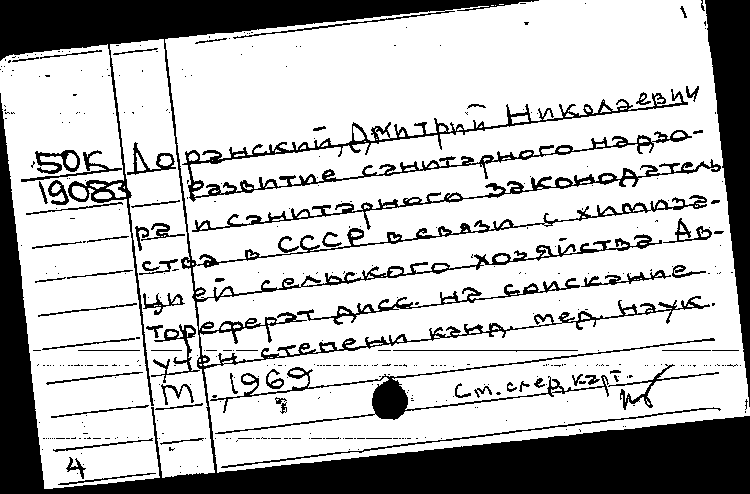 1
50К Лоранский, Дмитрий Николаевич
19083 Развитие санитарного надзо-
ра и санитарного законодатель
ства в СССР в связи с химиза-
цией сельского хозяйства. Ав-
тореферат дисс. на соискание
учен. степени канд. мед. наук.
М., 1969
См. след. карт.
4